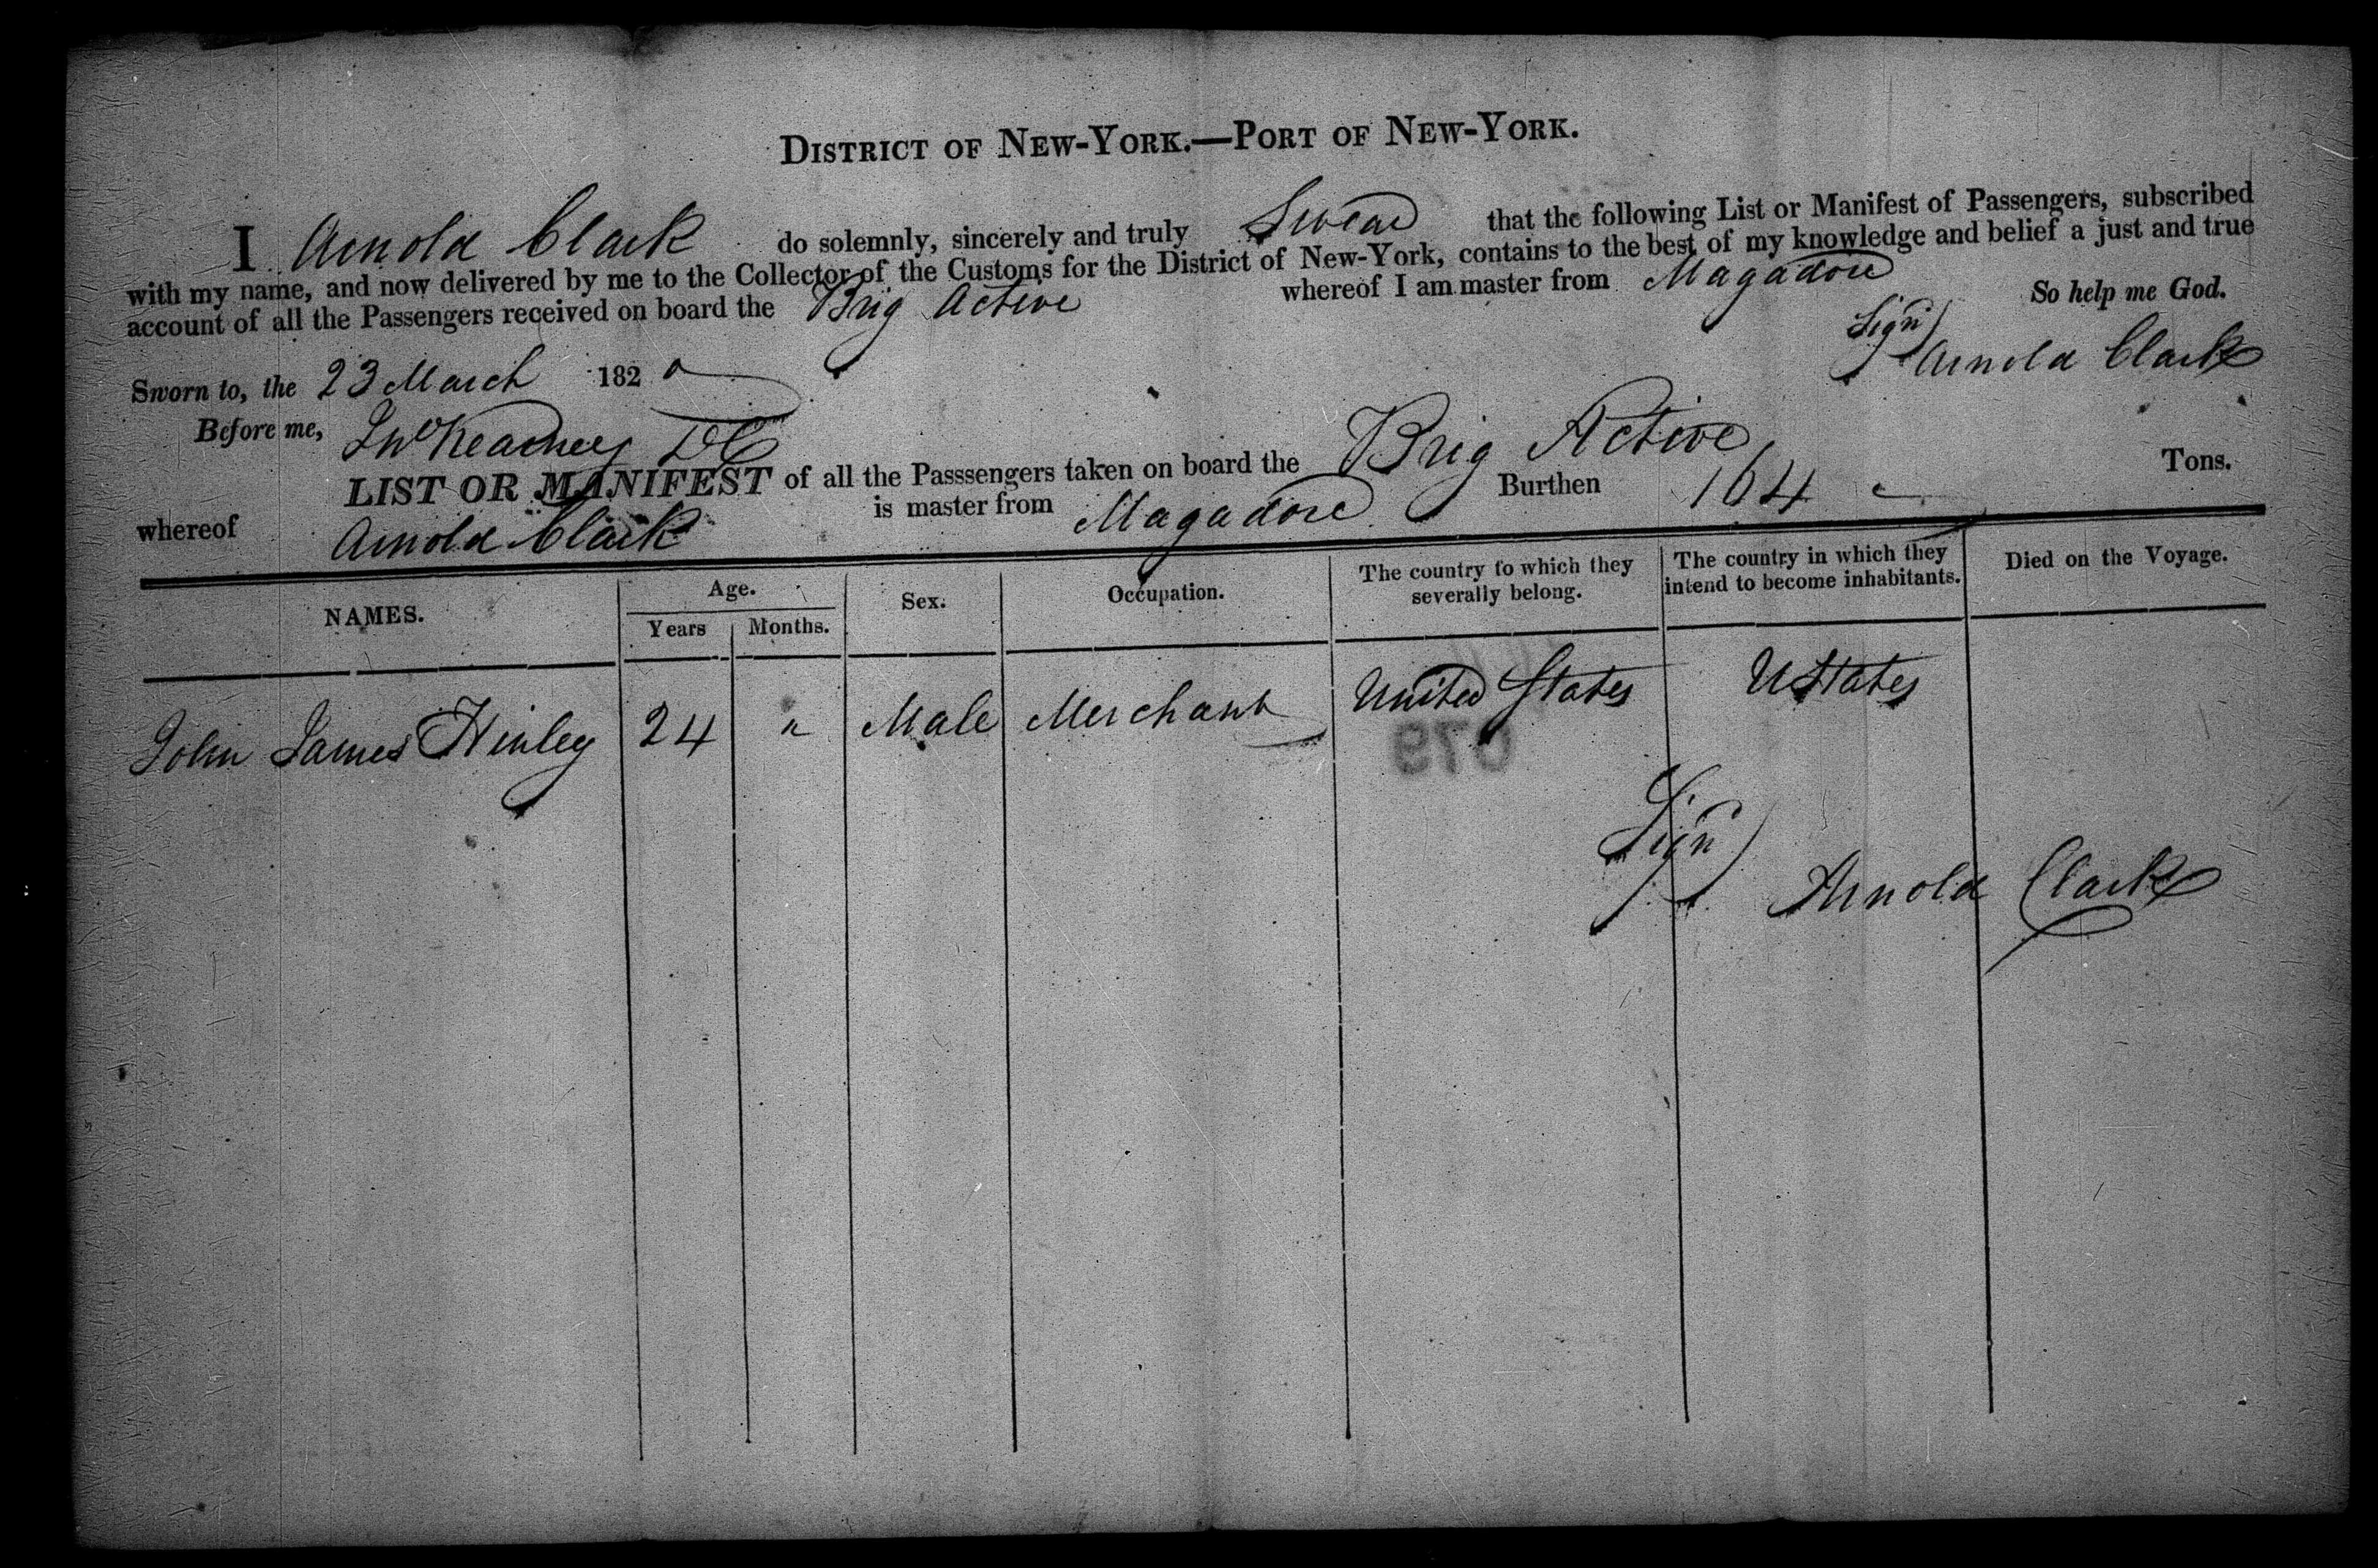 DISTRICT OF NEW-YORK.—PORT OF NEW-YORK.
I Arnold Clark do solemnly, sincerely and truly Swear that the following List or Manifest of Passengers, subscribed
with my name, and now delivered by me to the Collector of the Customs for the District of New-York, contains to the best of my knowledge and belief a just and true
account of all the Passengers received on board the Brig Active whereof I am master from Magadore So help me God.
Sign Arnold Clark
Sworn to, the 23 March 1820
Before me, Kearney DC
LIST OR MANIFEST of all the Passsengers taken on board the Brig Active
whereof Arnold Clark is master from Magadore Burthen 164 Tons.
NAMES. Age. Years Months. Sex. Occupation. The country to which they severally belong. The country in which they intend to become inhabitants. Died on the Voyage.
John James Hinley 24 " Male Merchant United States UStates
079
Sign Arnold Clark